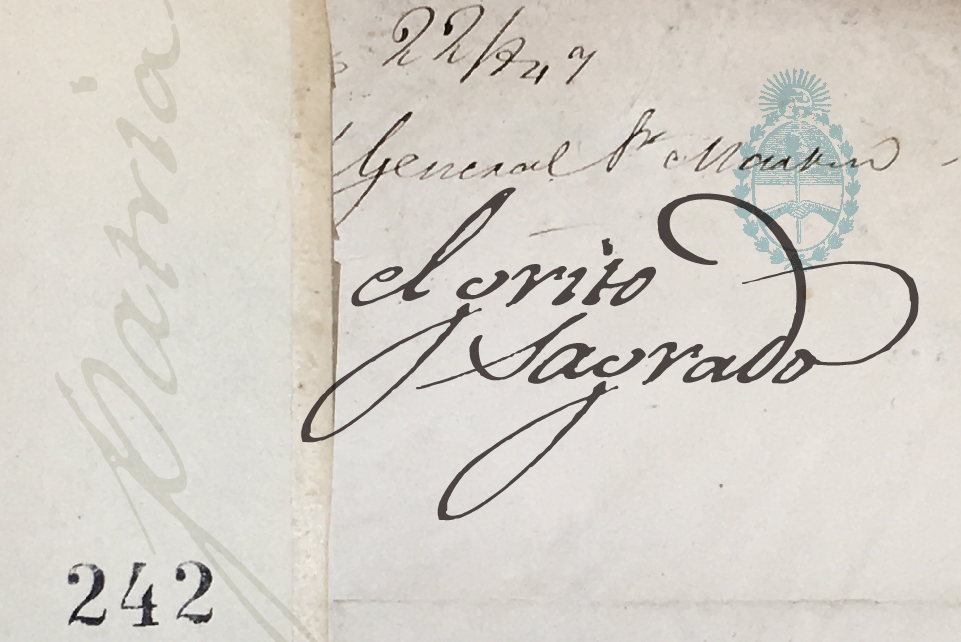 General Sn Martin
el grito
Sagrado
Patria
242